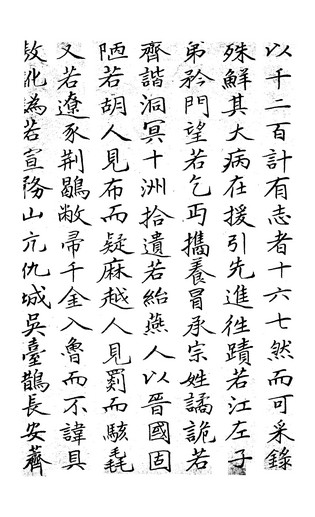 以千二百計有志者十六七然而可采錄
殊鮮其大病在援引先進徃蹟若江左子
弟矜門望若乞丐攜養冒承宗姓譎詭若
齊諧洞冥十洲拾遺若紿燕人以晉國固
陋若胡人見布而疑麻越人見罽而駭毳
又若遼豕荆鶡敝帚千金入魯而不諱具
敖化為若宣務山亢仇城吳臺鵲長安薺